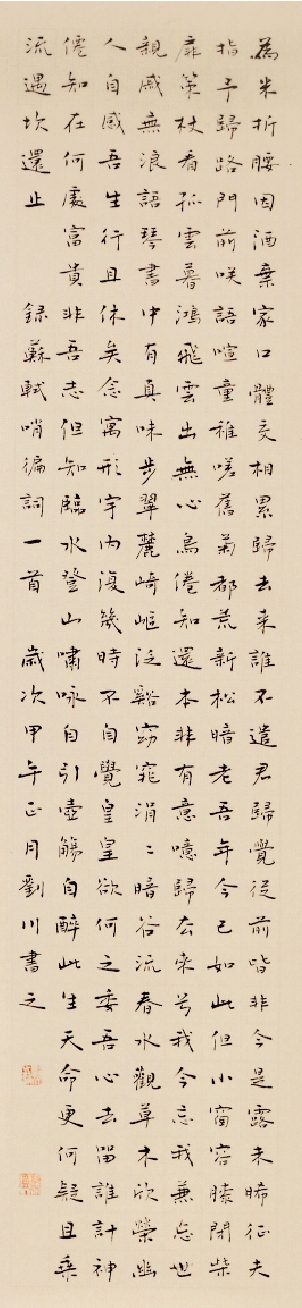 為米折腰因酒棄家口體交相累歸去來誰不遣君歸覺從前皆非今是露未晞征夫
指予歸路門前咲語喧童稚嗟舊菊都荒新松暗老吾年今已如此但小窗容膝閉柴
扉策杖看孤雲暮鴻飛雲出無心鳥倦知還本非有意噫歸去來兮我今忘我兼忘世
親戚無浪語琴書中有真味步翠麓崎嶇泛谿窈窕涓〻暗谷流春水觀草木欣榮幽
人自感吾生行且休矣念寓形宇內復幾時不自覺皇皇欲何之委吾心去留誰計神
僊知在何處富貴非吾志但知臨水登山嘯咏自引壺觴自醉此生天命更何疑且乘
流遇坎還止 錄蘇軾哨徧詞一首 歲次甲午正月劉川書之